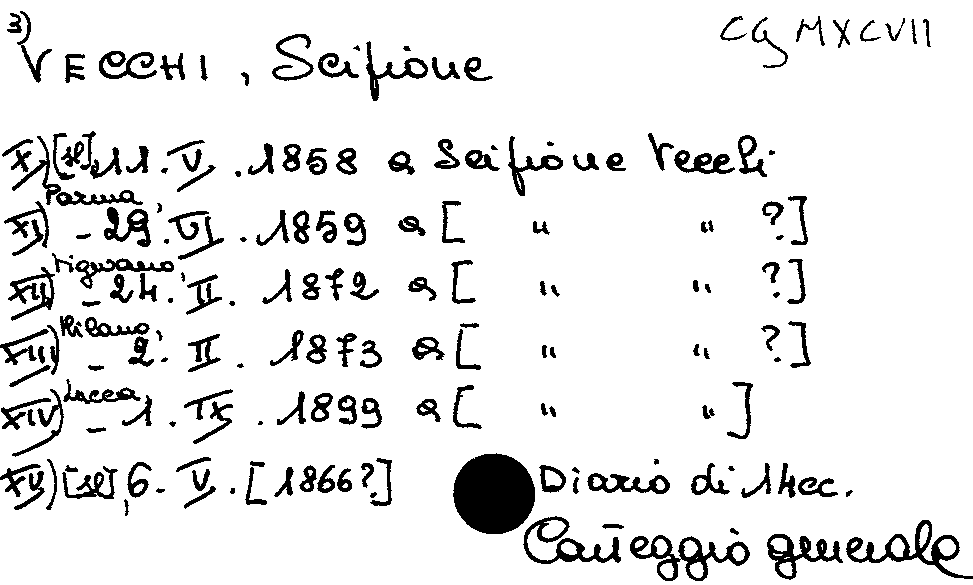 3)
CG MXCVII
VECCHI, Scipione
X) [sl], 11. V. 1858 a Scipione Vecchi
XI) Parma, - 29. VI. 1859 a [ " " ?]
XII) Vigevano, - 24. II. 1872 a [ " " ?]
XIII) Milano, - 2. II. 1873 a [ " " ?]
XIV) Lucca, - 1. IX. 1899 a [ " " ]
XV) [sl], 6. V. [1866?]
Diario di 14cc.
Carteggio generale